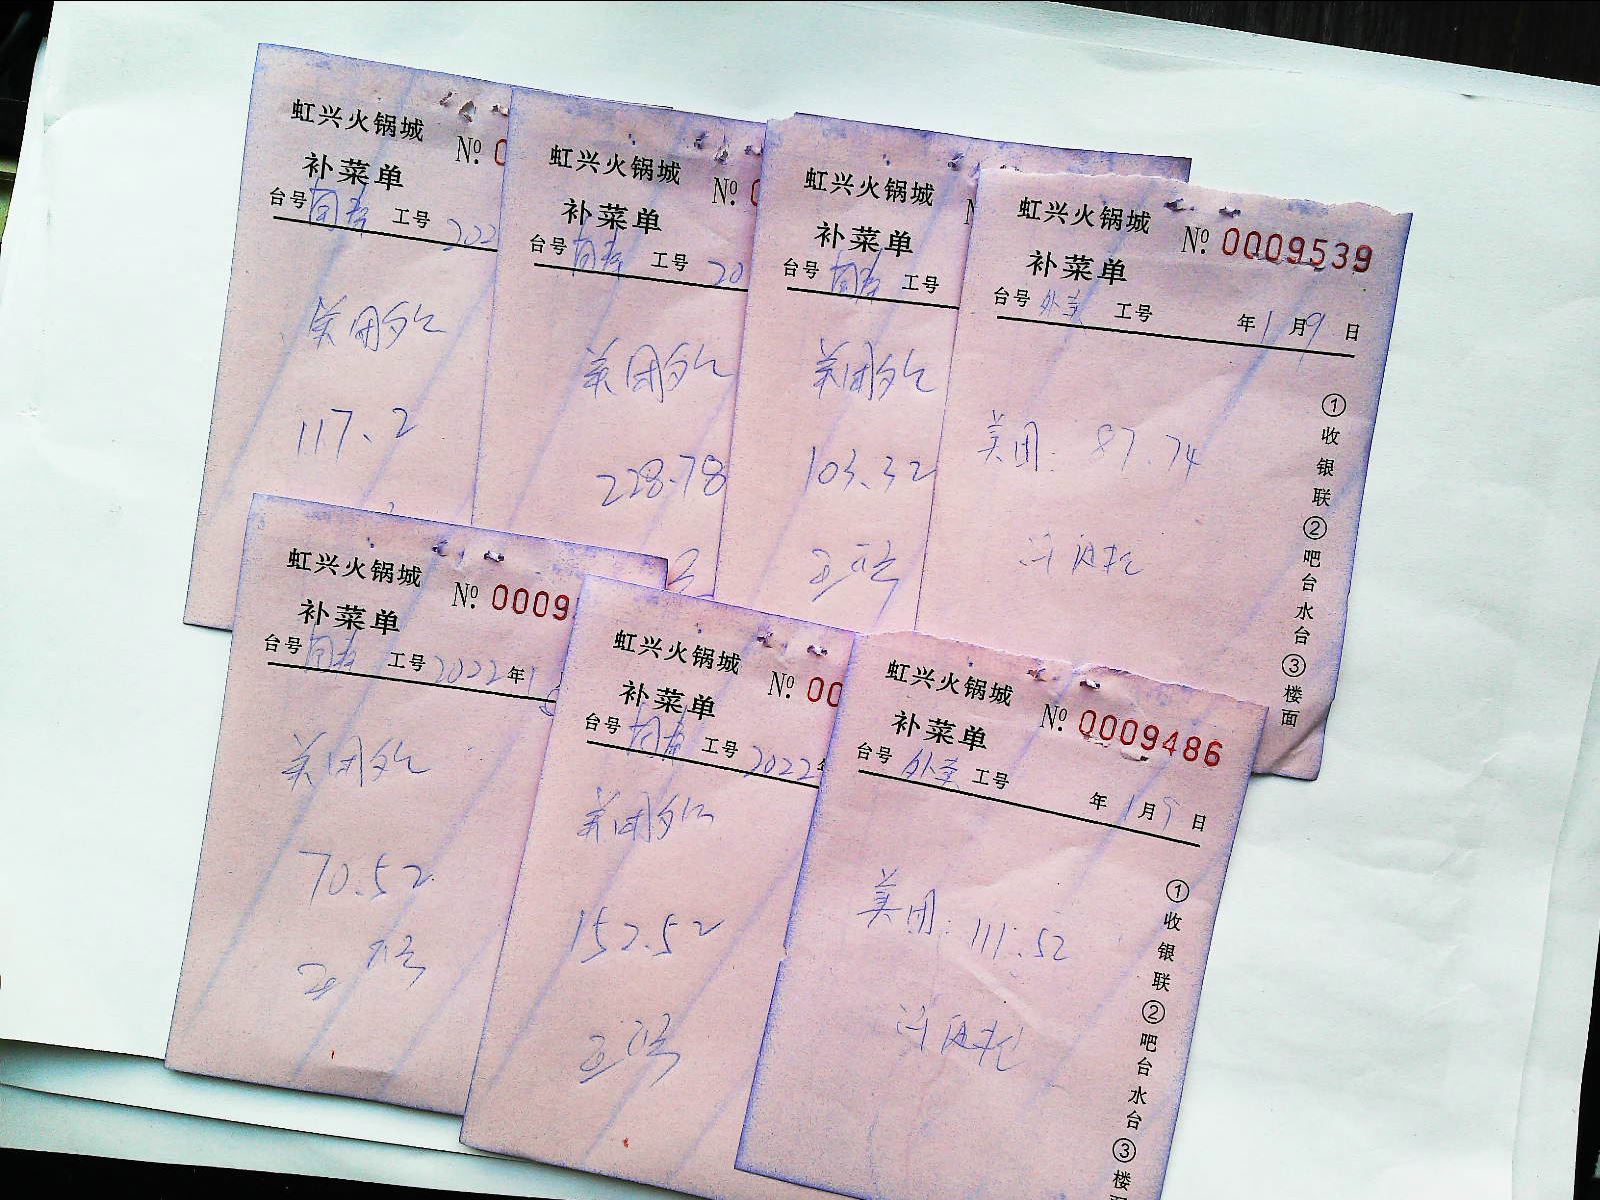 虹兴火锅城
补菜单
No. 0
台号 工号 202
美团外
117.2
虹兴火锅城
补菜单
No. 0
台号 工号 20
美团外
228.78
虹兴火锅城
补菜单
台号 工号
美团外
103.32
虹兴火锅城
No. 0009539
补菜单
台号 外卖 工号 年 1 月 9 日
美团: 87.74
①收银联②吧台水台③楼面
虹兴火锅城
No. 0009
补菜单
台号 工号 2022 年 1
美团外
70.52
虹兴火锅城
No. 00
补菜单
台号 工号 2022
美团外
152.52
虹兴火锅城
No. 0009486
补菜单
台号 外卖 工号 年 1 月 9 日
美团: 111.52
①收银联②吧台水台③楼